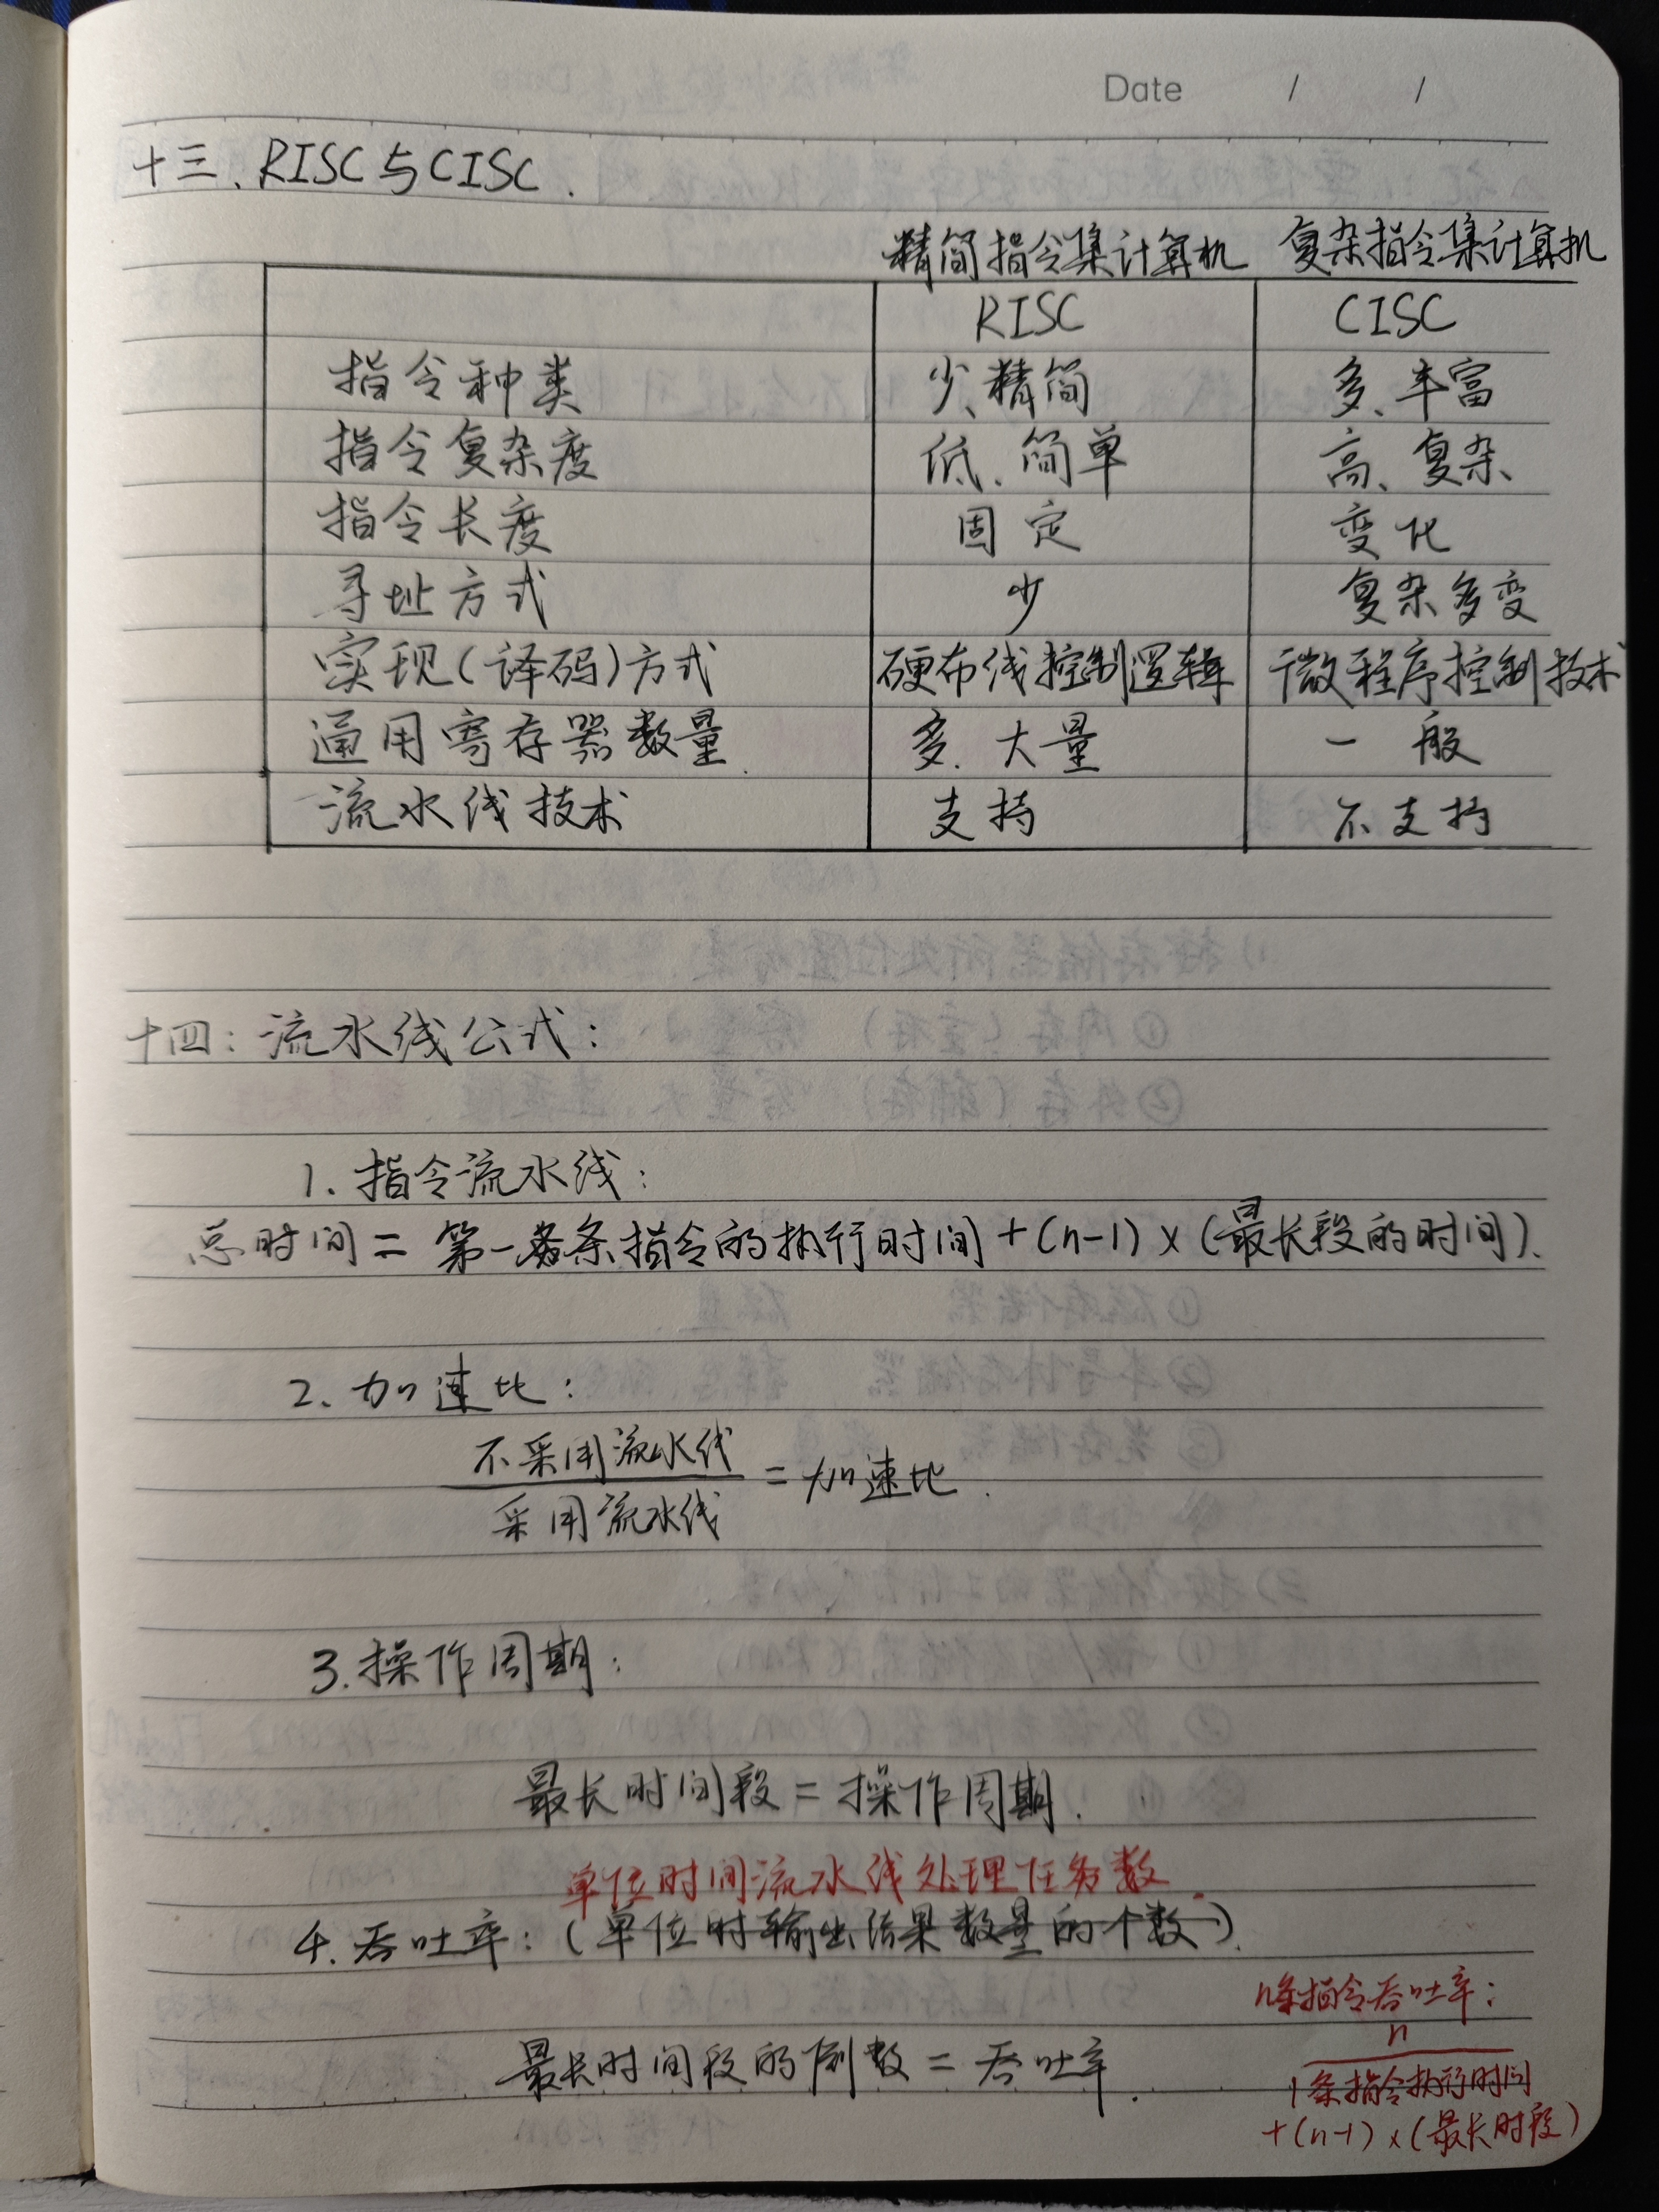 Date / /
十三、RISC与CISC.
精简指令集计算机 复杂指令集计算机
RISC CISC
指令种类 少、精简 多、丰富
指令复杂度 低、简单 高、复杂
指令长度 固定 变化
寻址方式 少 复杂多变
实现(译码)方式 硬布线控制逻辑 微程序控制技术
通用寄存器数量 多、大量 一般
流水线技术 支持 不支持
十四:流水线公式:
1.指令流水线:
总时间=第一条指令的执行时间+(n-1)×(最长段的时间).
2.加速比:
不采用流水线
采用流水线
=加速比.
3.操作周期:
最长时间段=操作周期.
单位时间流水线处理任务数.
4.吞吐率:(单位时输出结果数量的个数).
最长时间段的倒数=吞吐率.
n条指令吞吐率:
n
1条指令执行时间
+(n-1)×(最长时段)